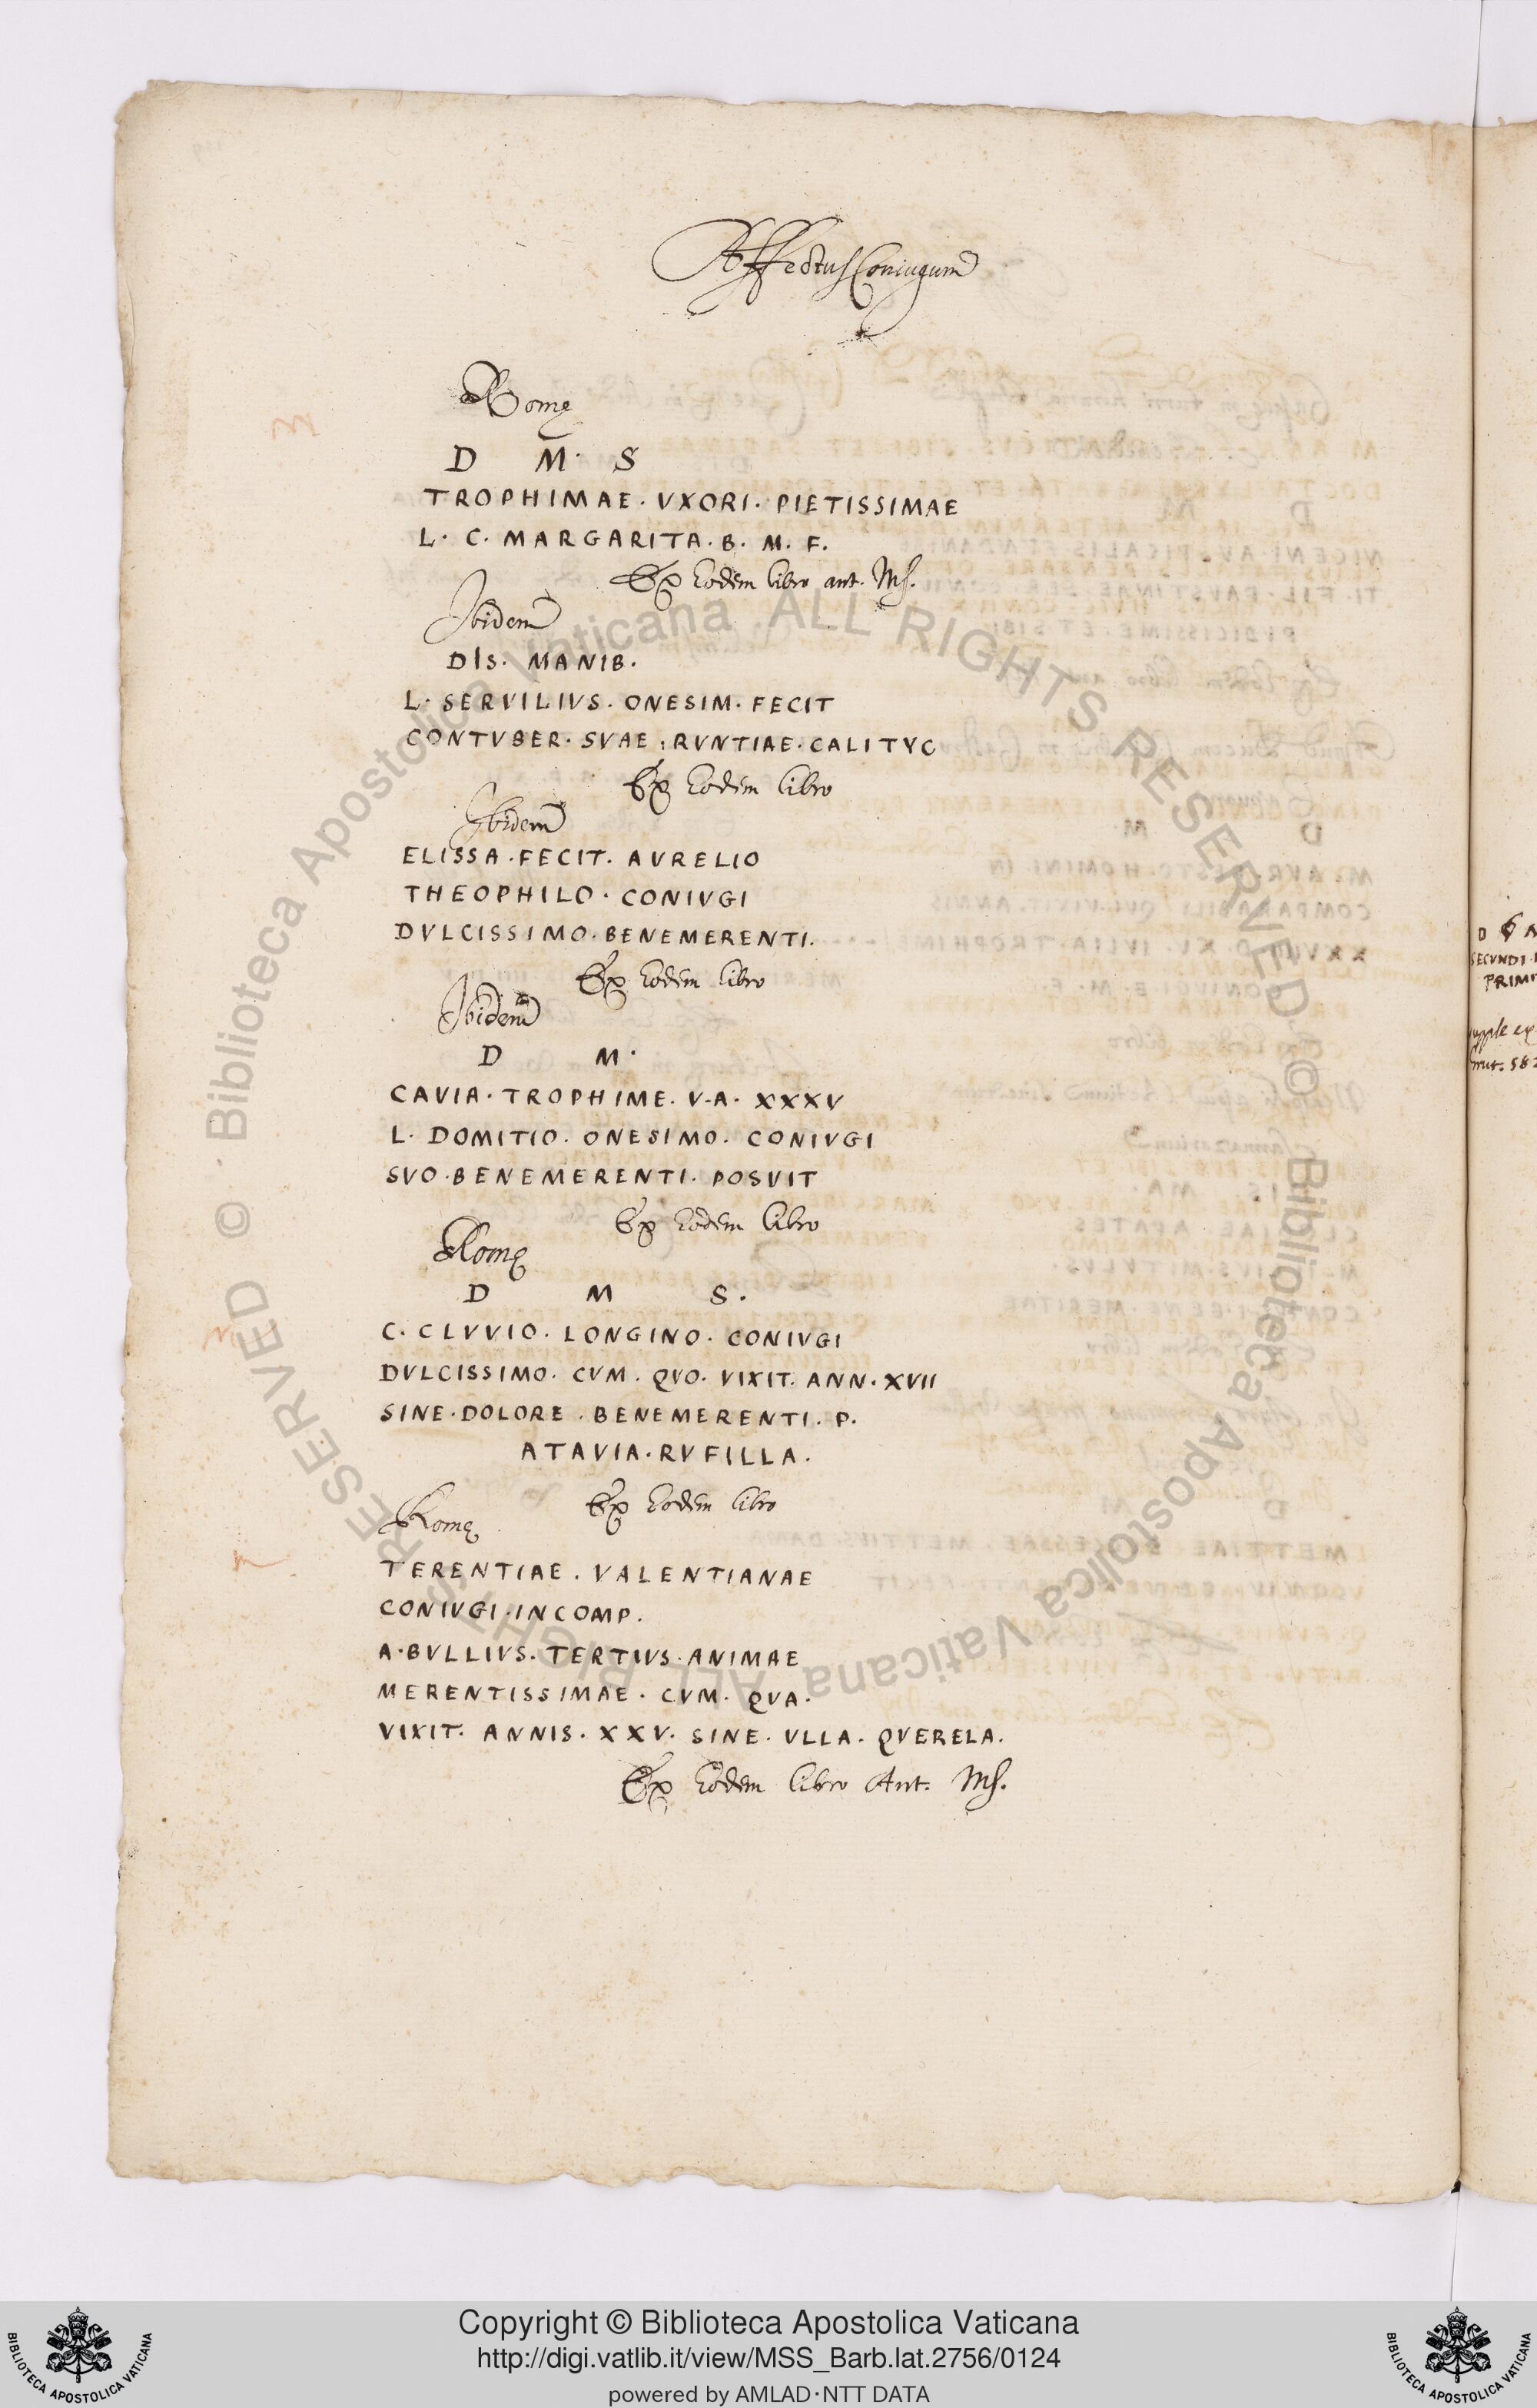 Affectus Coniugum
Romę
D M· S
TROPHIMAE · VXORI · PIETISSIMAE
L· C· MARGARITA · B · M · F ·
Ex Eodem libro ant. Ms.
Ibidem
DIS · MANIB ·
L · SERVILIVS · ONESIM · FECIT
CONTVBER · SVAE : RVNTIAE · CALITYC
Ex Eodem libro
Ibidem
ELISSA · FECIT · AVRELIO
THEOPHILO · CONIVGI
DVLCISSIMO · BENEMERENTI ·
Ex Eodem libro
Ibidem
D M ·
CAVIA · TROPHIME · V · A · XXXV
L · DOMITIO · ONESIMO · CONIVGI
SVO · BENEMERENTI · POSVIT
Ex Eodem libro
Romę
D M S ·
C · CLVVIO · LONGINO · CONIVGI
DVLCISSIMO · CVM · QVO · VIXIT · ANN · XVII
SINE · DOLORE · BENEMERENTI · P ·
ATAVIA · RVFILLA ·
Ex Eodem libro
Romę
TERENTIAE · VALENTIANAE
CONIVGI · INCOMP ·
A · BVLLIVS · TERTIVS · ANIMAE
MERENTISSIMAE · CVM · QVA ·
VIXIT · ANNIS · XXV · SINE · VLLA · QVERELA ·
Ex Eodem libro Ant. Ms.
SECVNDI
PRIM
Copyright © Biblioteca Apostolica Vaticana
http://digi.vatlib.it/view/MSS_Barb.lat.2756/0124
powered by AMLAD·NTT DATA
BIBLIOTECA APOSTOLICA VATICANA
BIBLIOTECA APOSTOLICA VATICANA
© Biblioteca Apostolica Vaticana ALL RIGHTS RESERVED
© Biblioteca Apostolica Vaticana ALL RIGHTS RESERVED